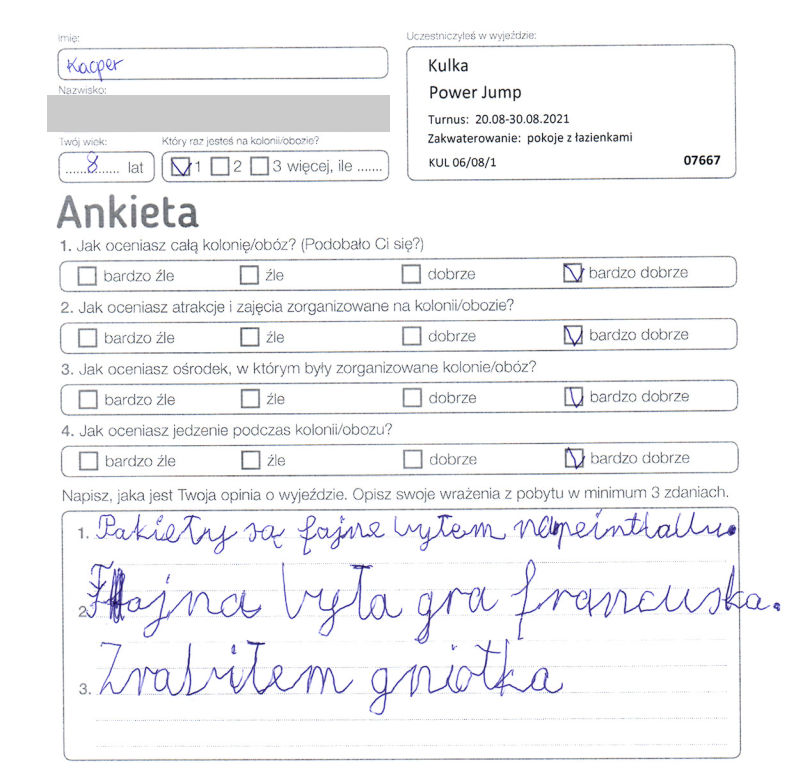 Imię:
Kacper
Nazwisko:
Twój wiek:
......8...... lat
Który raz jesteś na kolonii/obozie?
1 2 3 więcej, ile .......
Uczestniczyłeś w wyjeździe:
Kulka
Power Jump
Turnus: 20.08-30.08.2021
Zakwaterowanie: pokoje z łazienkami
KUL 06/08/1 07667
Ankieta
1. Jak oceniasz całą kolonię/obóz? (Podobało Ci się?)
bardzo źle źle dobrze bardzo dobrze
2. Jak oceniasz atrakcje i zajęcia zorganizowane na kolonii/obozie?
bardzo źle źle dobrze bardzo dobrze
3. Jak oceniasz ośrodek, w którym były zorganizowane kolonie/obóz?
bardzo źle źle dobrze bardzo dobrze
4. Jak oceniasz jedzenie podczas kolonii/obozu?
bardzo źle źle dobrze bardzo dobrze
Napisz, jaka jest Twoja opinia o wyjeździe. Opisz swoje wrażenia z pobytu w minimum 3 zdaniach.
1. Pakiety są fajne byłem na peintballu.
2. Fajna była gra francuska.
3. Zrabiłem gniotka